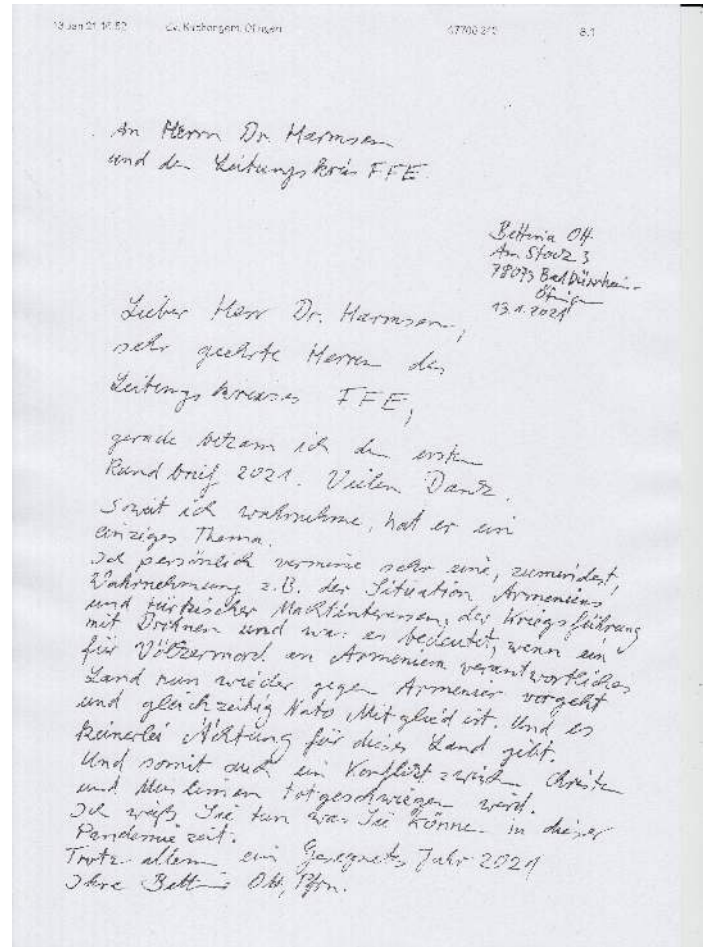 13 Jan 21 16:52 Ev. Kirchengem. Öfingen 07706 S.1
An Herrn Dr. Harmsen
und den Leitungskreis FFE.
Bettina Ott
Am Stock 3
78073 Bad Dürrheim-
Öfingen
13.1.2021
Lieber Herr Dr. Harmsen,
sehr geehrte Herren des
Leitungskreises FFE,
gerade bekam ich den ersten
Rundbrief 2021. Vielen Dank.
Soweit ich wahrnehme, hat er ein
einziges Thema.
Ich persönlich vermisse sehr eine, zumindest,
Wahrnehmung z.B. der Situation Armeniens
und türkischer Machtinteressen, der Kriegsführung
mit Drohnen und was es bedeutet, wenn ein
für Völkermord an Armeniern verantwortliches
Land nun wieder gegen Armenier vorgeht
und gleichzeitig Nato Mitglied ist. Und es
keinerlei Ächtung für dieses Land gibt.
Und somit auch ein Konflikt zwischen Christen
und Muslimen totgeschwiegen wird.
Ich weiß Sie tun was Sie können in dieser
Pandemiezeit.
Trotz allem ein Gesegnetes Jahr 2021
Ihre Bettina Ott, Pfrn.